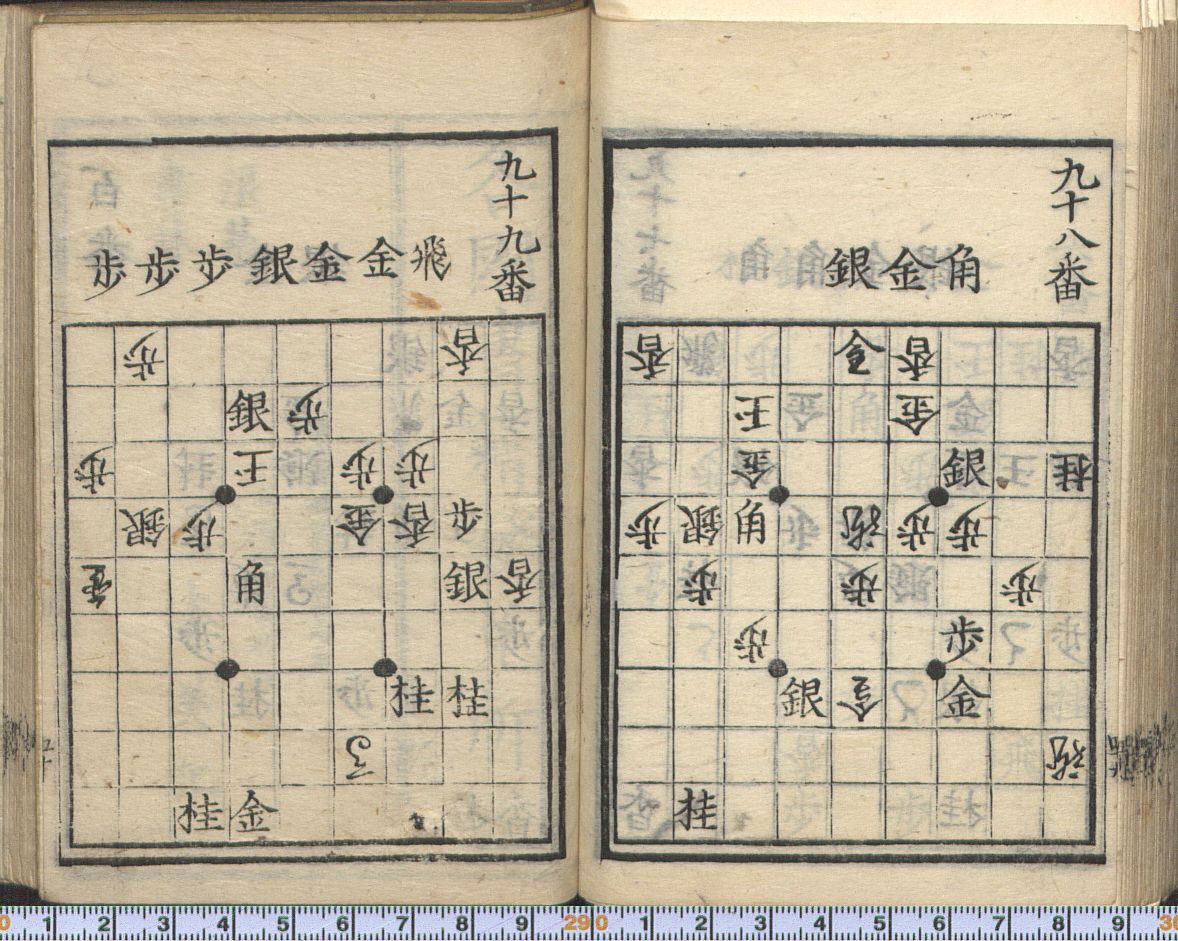 九十八番
角金銀
香全香
金玉
桂銀金
歩歩飛角銀歩
歩歩歩
歩歩
金全銀
飛
桂
九十九番
飛金金銀歩歩歩
香歩
歩銀
歩歩王歩
歩香金歩銀
香銀角
桂桂
金桂